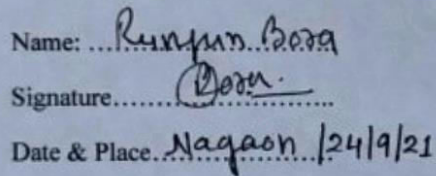 Name: ... Runjun Bora
Signature...... Bora.
Date & Place. Nagaon /24/9/21